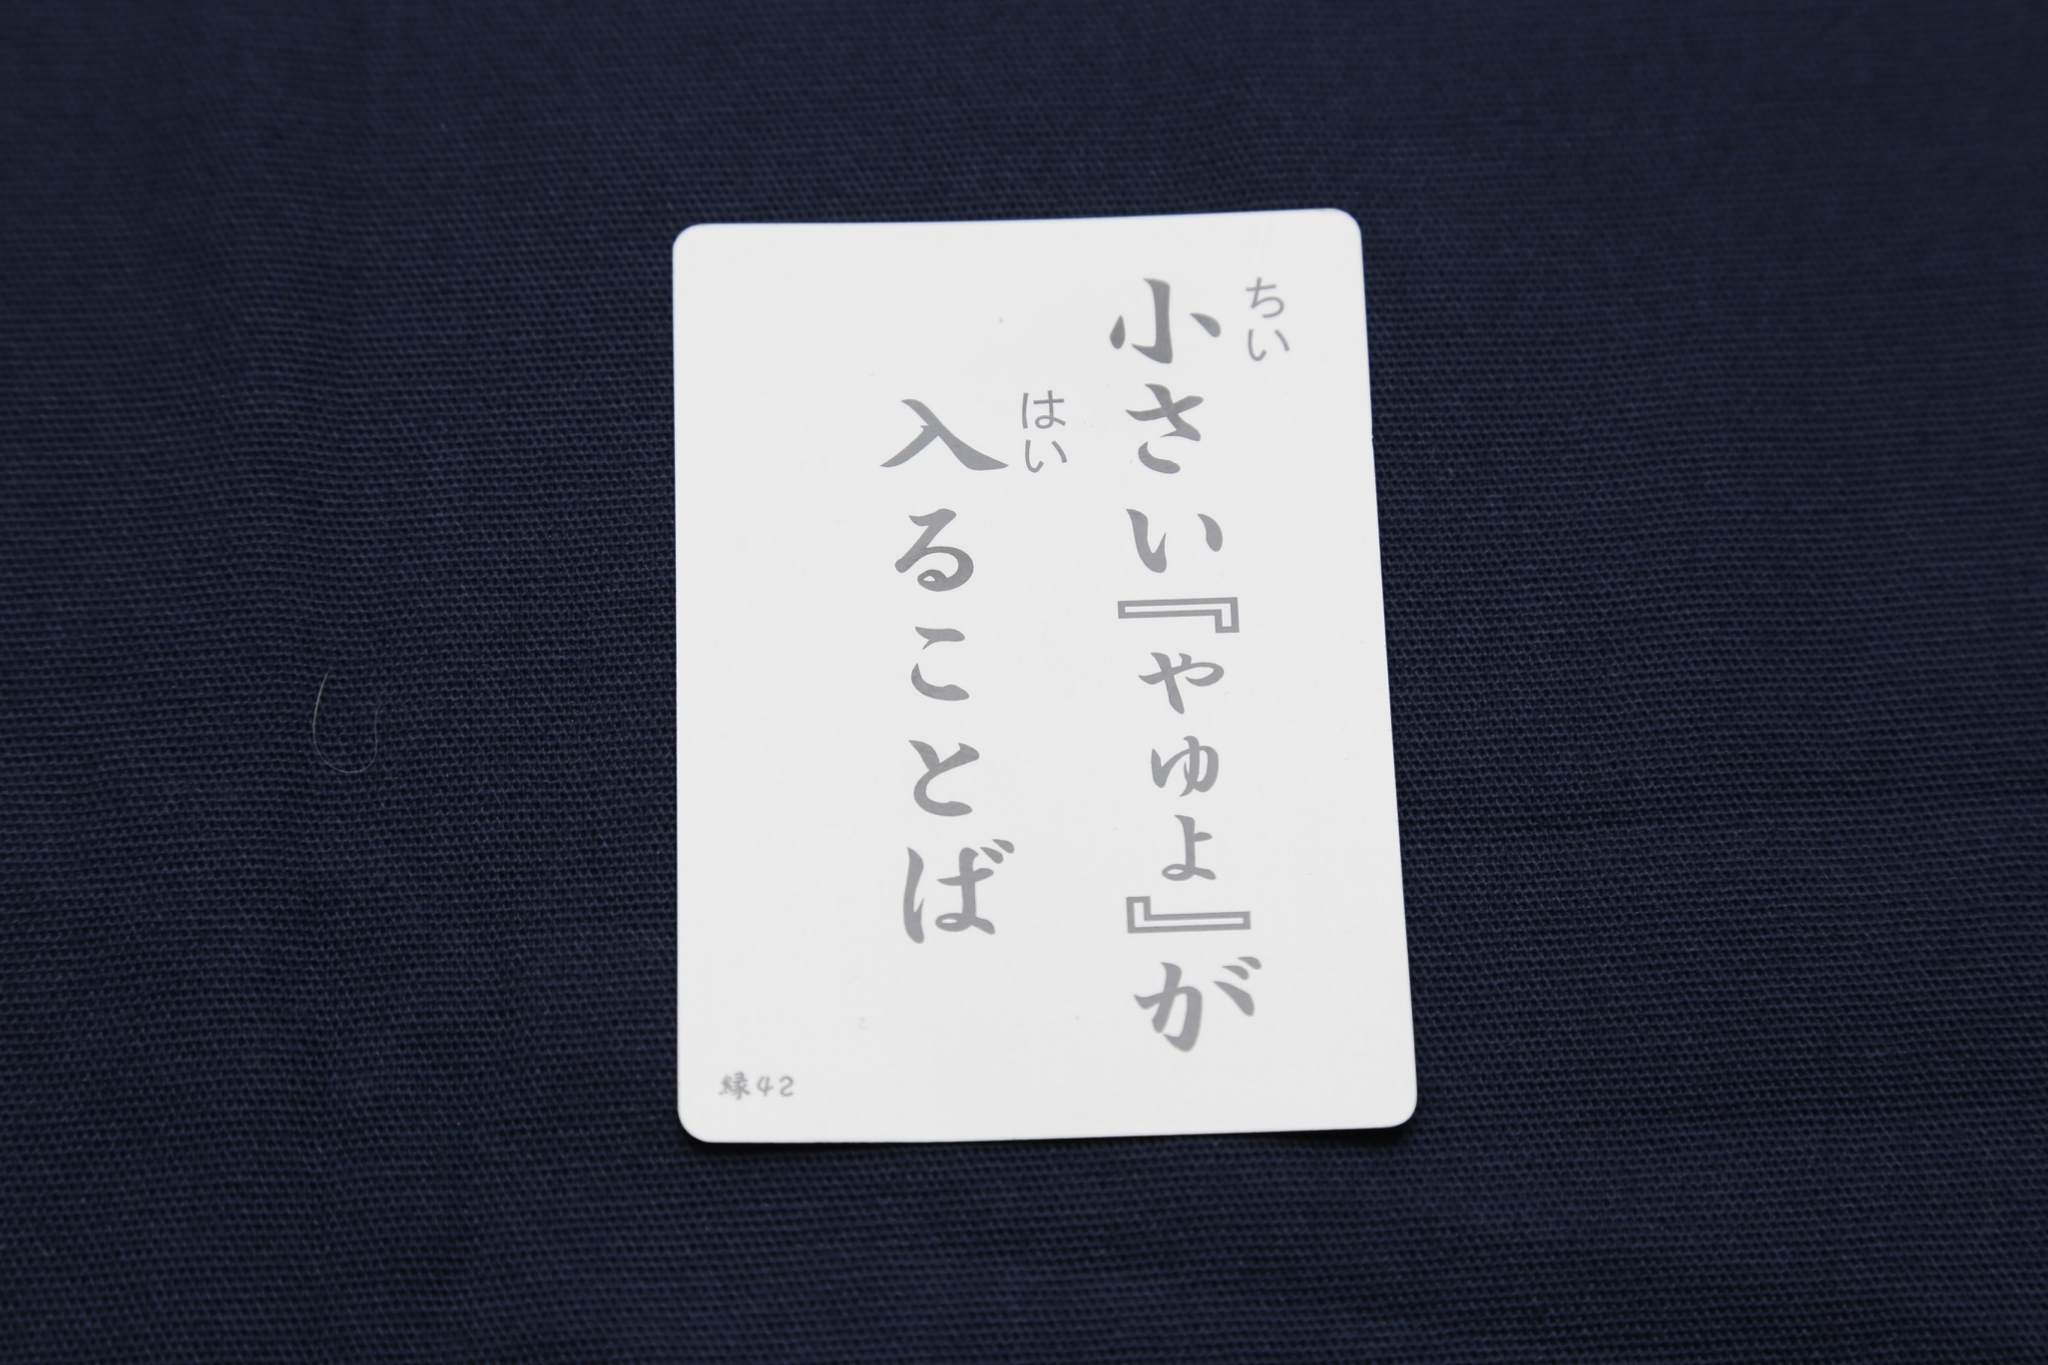 小さい『ゃゅょ』が
ちい
入ることば
はい
縁42